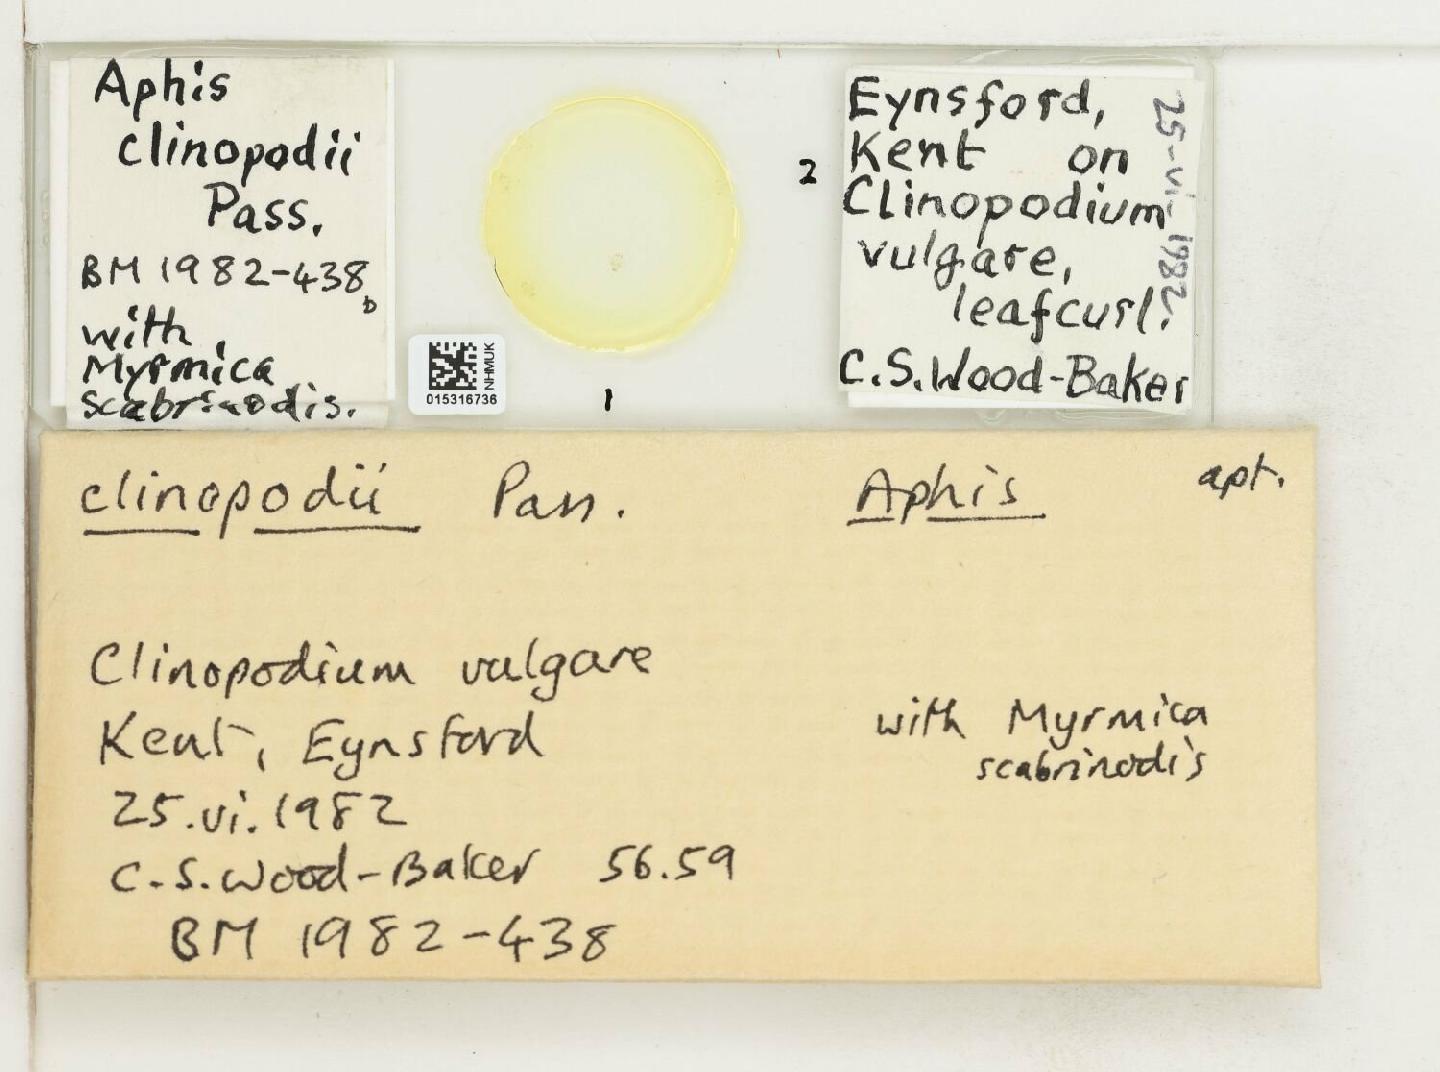 Aphis
clinopodii
Pass.
BM 1982-438
b
with
Myrmica
scabrinodis.
NHMUK
015316736
1
2
Eynsford,
Kent on
Clinopodium
vulgare,
leafcurl.
C.S.Wood-Baker
25-vi.1982
clinopodii Pass. Aphis apt.
Clinopodium vulgare
Kent, Eynsford
with Myrmica
scabrinodis
25.vi.1982
C.S.Wood-Baker 56.59
BM 1982-438